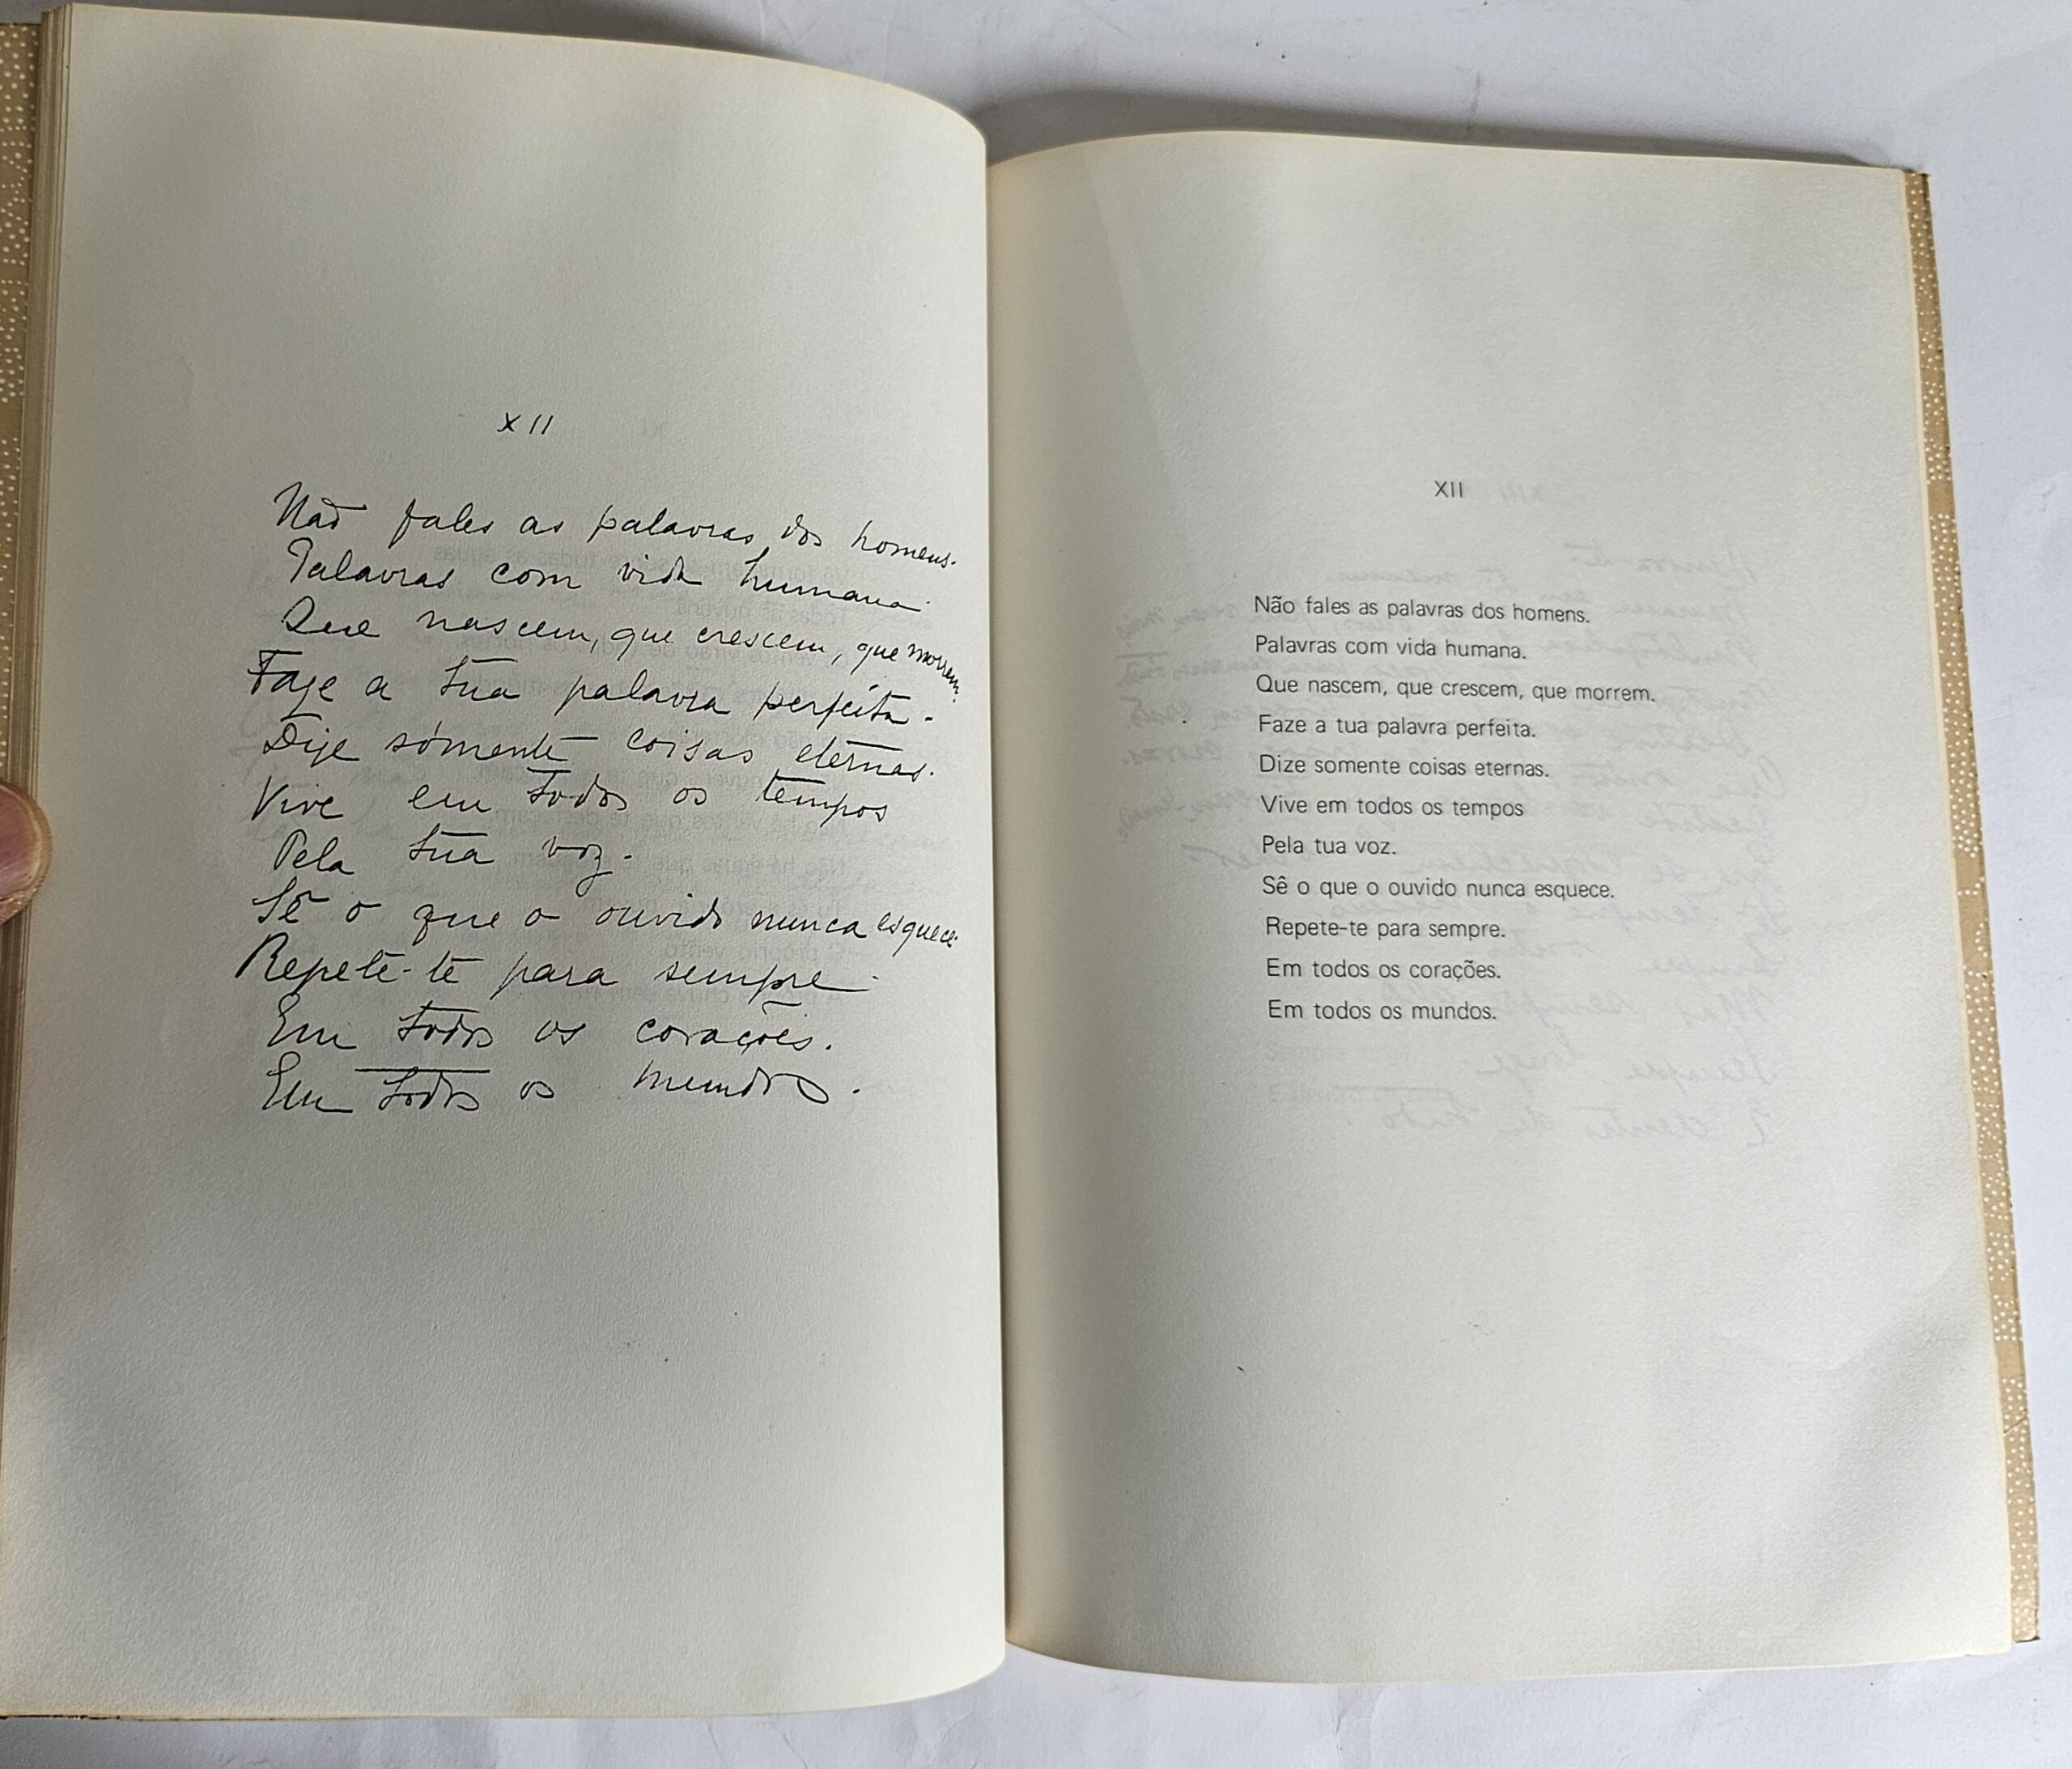 XII
Não fales as palavras dos homens.
Palavras com vida humana
Que nascem, que crescem, que morrem.
Faze a tua palavra perfeita.
Dize sómente coisas eternas.
Vive em todos os tempos
Pela tua voz.
Sê o que o ouvido nunca esquece.
Repete-te para sempre.
Em todos os corações.
Em todos os mundos.
XII
Não fales as palavras dos homens.
Palavras com vida humana.
Que nascem, que crescem, que morrem.
Faze a tua palavra perfeita.
Dize somente coisas eternas.
Vive em todos os tempos
Pela tua voz.
Sê o que o ouvido nunca esquece.
Repete-te para sempre.
Em todos os corações.
Em todos os mundos.